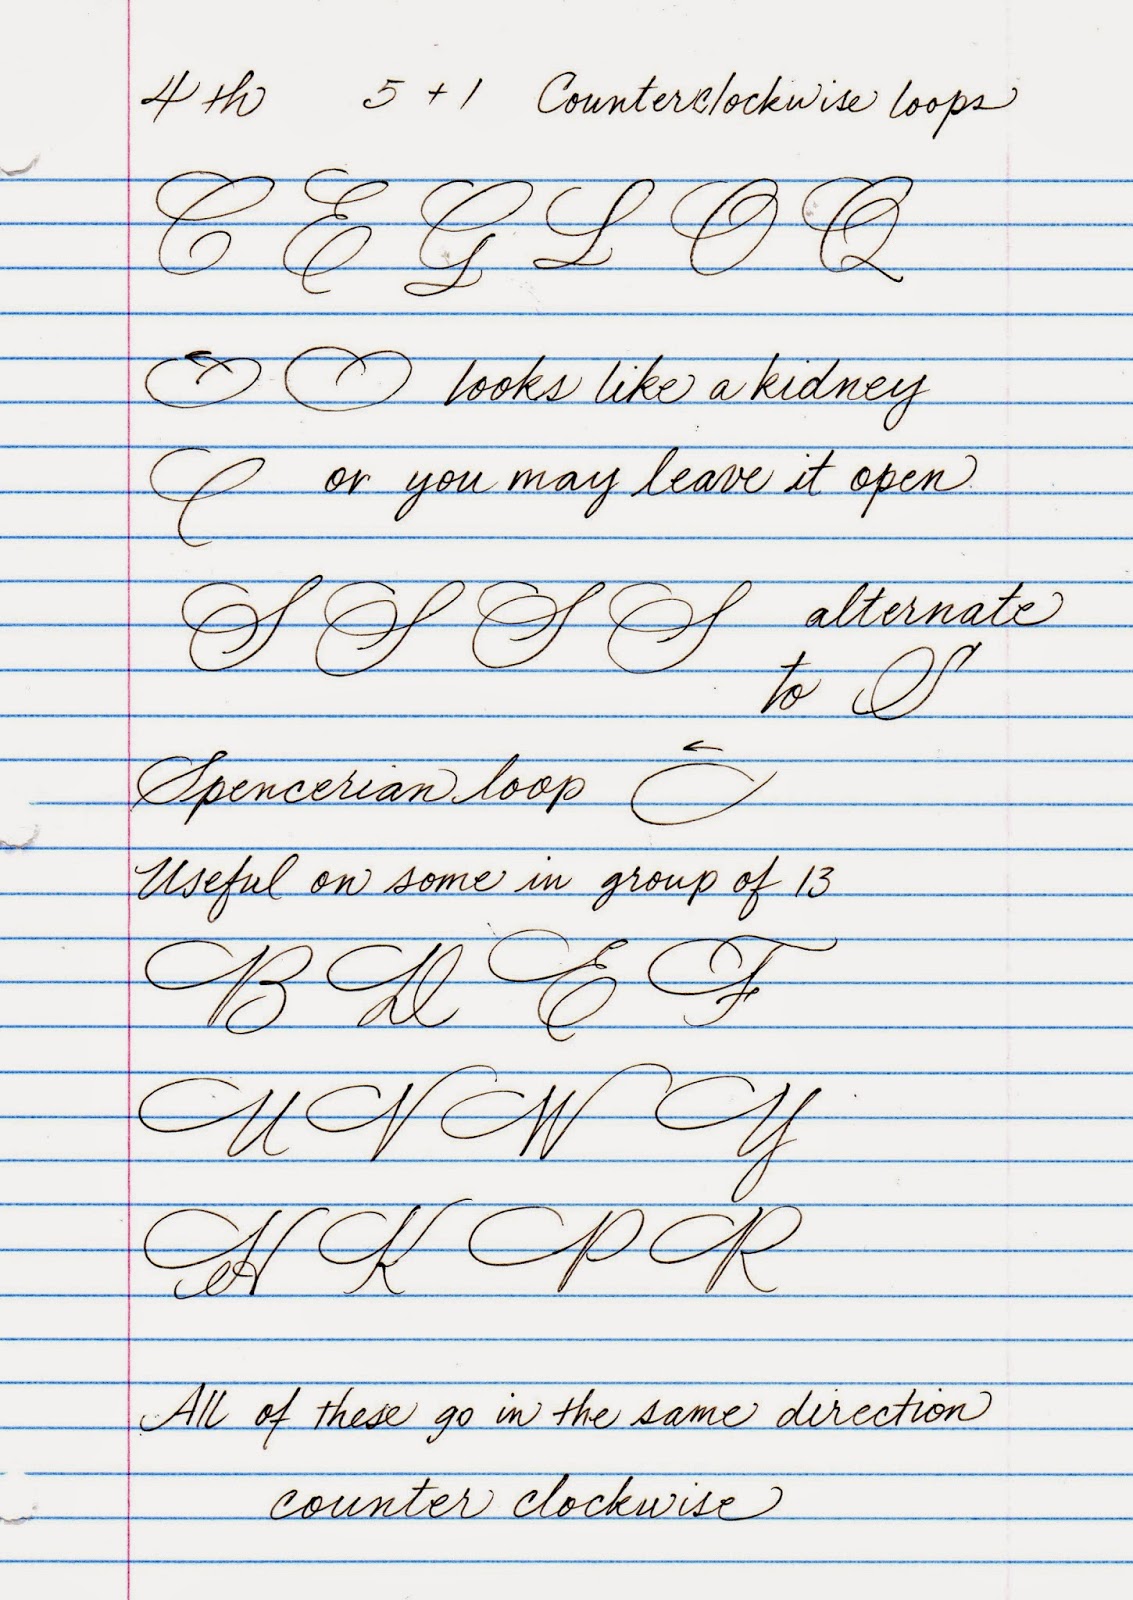 4th 5+1 Counterclockwise loops
C E G L O Q
looks like a kidney
C or you may leave it open
S S S S alternate
to S
Spencerian loop
Useful on some in group of 13
B D E F
U V W Y
H K P R
All of these go in the same direction
counter clockwise